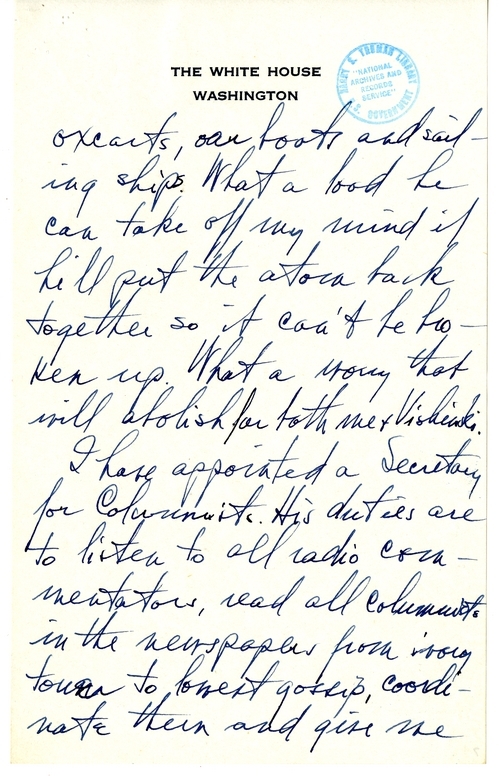 THE WHITE HOUSE
WASHINGTON
HARRY S. TRUMAN LIBRARY
"NATIONAL
ARCHIVES AND
RECORDS
SERVICE"
U.S. GOVERNMENT
oxcarts, oar boats and sail-
ing ships. What a load he
can take off my mind if
he'll put the atom back
together so it can't be bro-
ken up. What a worry that
will abolish for both me & Vishinski.
I have appointed a Secretary
for Columnists. His duties are
to listen to all radio com-
mentators, read all columnists
in the newspapers from ivory
tower to lowest gossip, coordi-
nate them and give me